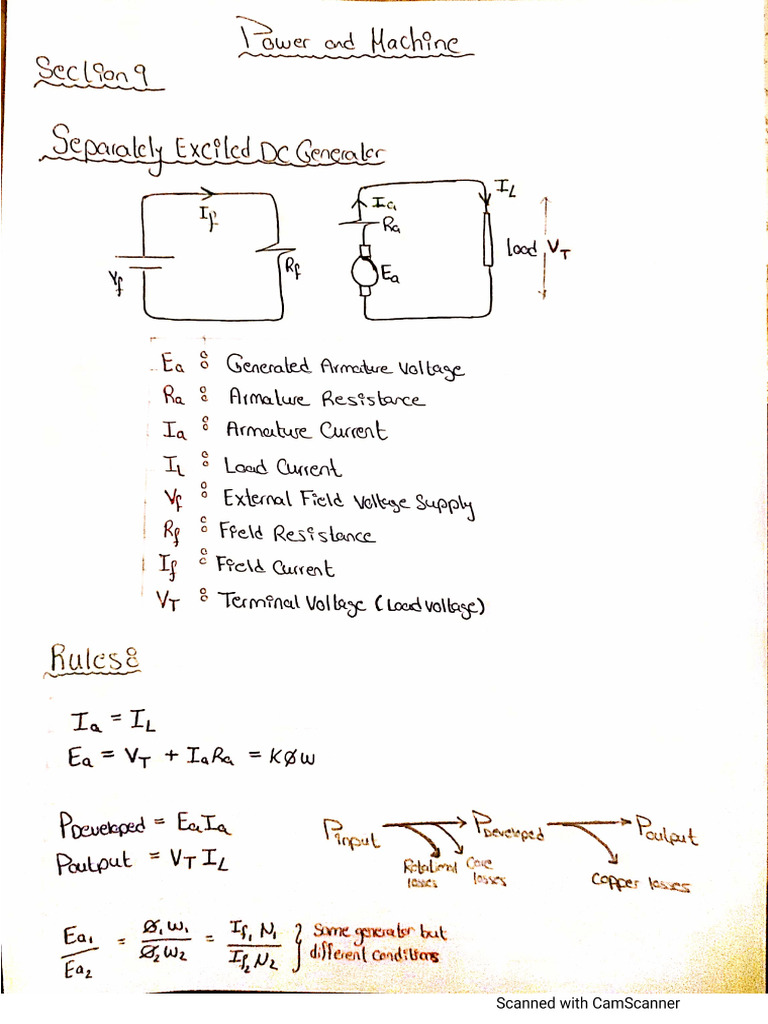 Power and Machine
Section 9
Separately Excited DC Generator
If
Vf
Rf
Ia
Ra
Ea
IL
load
VT
Ea : Generated Armature Voltage
Ra : Armature Resistance
Ia : Armature Current
IL : Load Current
Vf : External Field Voltage Supply
Rf : Field Resistance
If : Field Current
VT : Terminal Voltage (Load voltage)
Rules:
Ia = IL
Ea = VT + IaRa = KØω
PDeveloped = EaIa
Poutput = VT IL
Pinput
PDeveloped
Poutput
Rotational losses
Core losses
Copper losses
Ea1/Ea2 = Ø1ω1/Ø2ω2 = If1 N1/If2 N2 } Same generator but
different conditions
Scanned with CamScanner